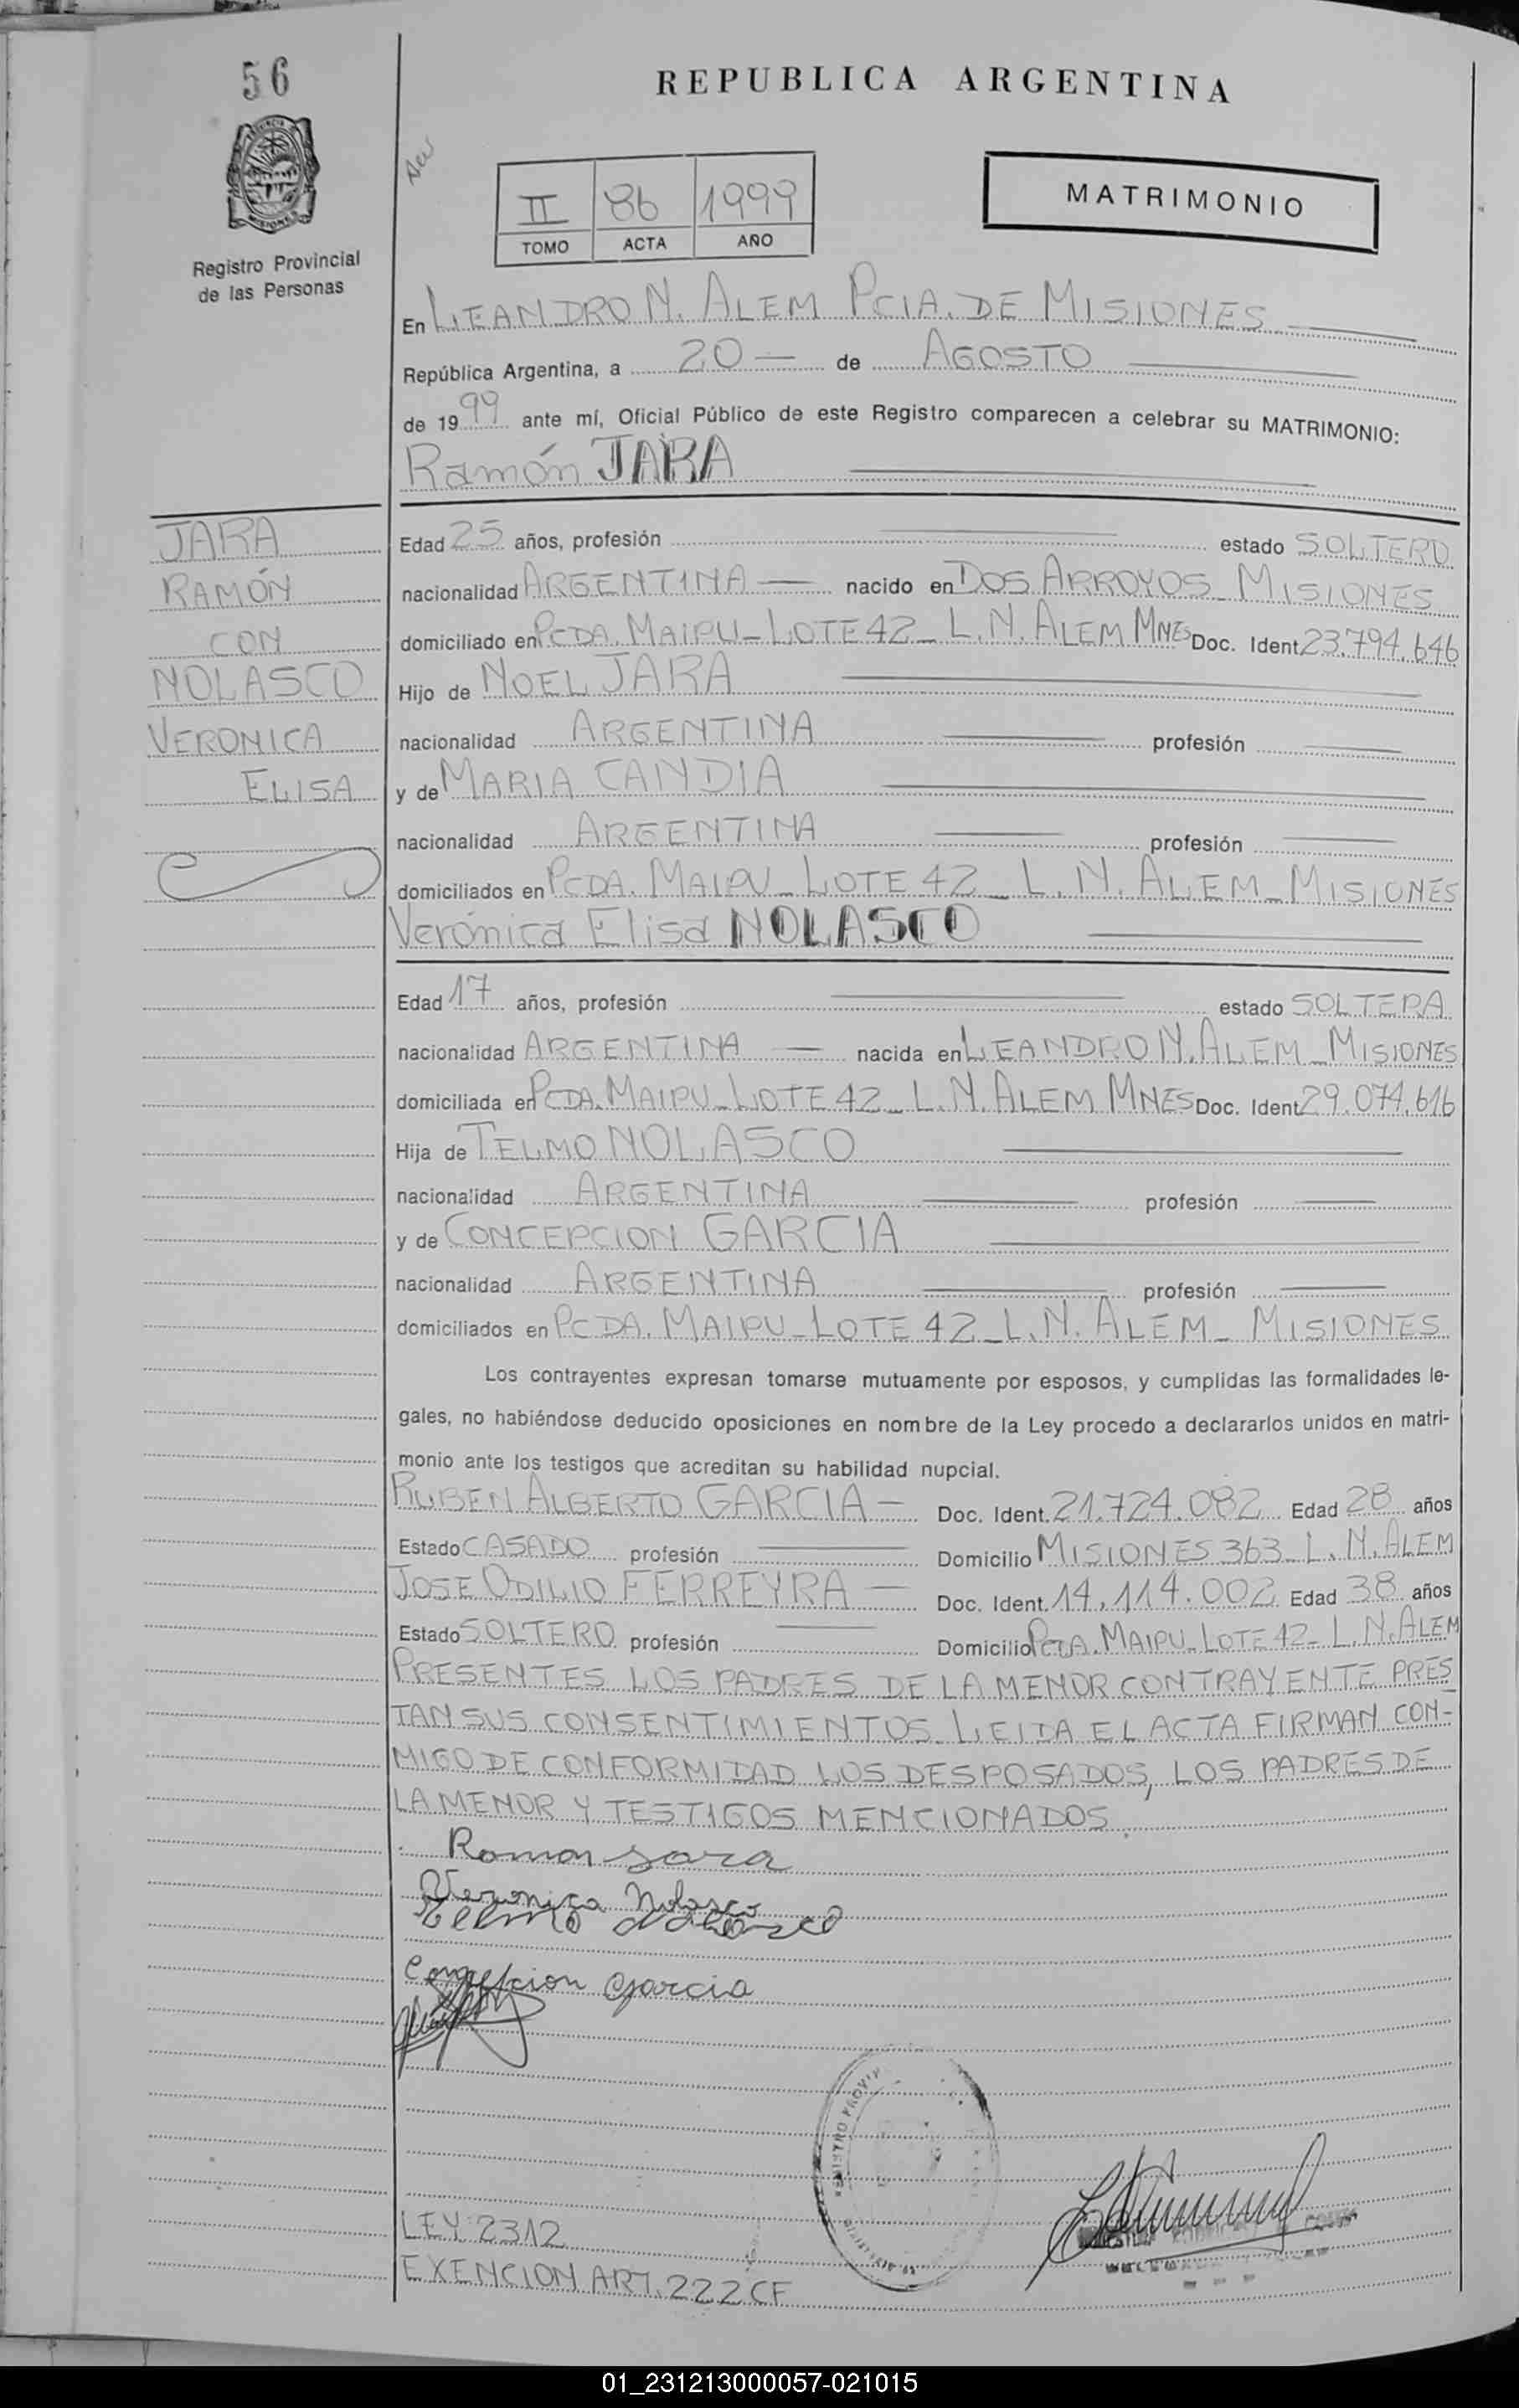 56
REPUBLICA ARGENTINA
PROVINCIA
MISIONES
Registro Provincial
de las Personas
II 86 1999
TOMO ACTA AÑO
MATRIMONIO
En LEANDRO N. ALEM PCIA. DE MISIONES
República Argentina, a 20 de AGOSTO
de 1999 ante mí, Oficial Público de este Registro comparecen a celebrar su MATRIMONIO:
Ramón JARA
JARA
RAMÓN
CON
NOLASCO
VERONICA
ELISA
Edad 25 años, profesión estado SOLTERO
nacionalidad ARGENTINA nacido en DOS ARROYOS_MISIONES
domiciliado en PCDA. MAIPU_LOTE 42_L.N. ALEM MNES Doc. Ident. 23.794.646
Hijo de NOEL JARA
nacionalidad ARGENTINA profesión
y de MARIA CANDIA
nacionalidad ARGENTINA profesión
domiciliados en PCDA. MAIPU_LOTE 42_L.N. ALEM_MISIONES
Verónica Elisa NOLASCO
Edad 17 años, profesión estado SOLTERA
nacionalidad ARGENTINA nacida en LEANDRO N. ALEM_MISIONES
domiciliada en PCDA. MAIPU_LOTE 42_L.N. ALEM MNES Doc. Ident. 29.074.616
Hija de TELMO NOLASCO
nacionalidad ARGENTINA profesión
y de CONCEPCION GARCIA
nacionalidad ARGENTINA profesión
domiciliados en PCDA. MAIPU_LOTE 42_L.N. ALEM_MISIONES
Los contrayentes expresan tomarse mutuamente por esposos, y cumplidas las formalidades le-
gales, no habiéndose deducido oposiciones en nombre de la Ley procedo a declararlos unidos en matri-
monio ante los testigos que acreditan su habilidad nupcial.
RUBEN ALBERTO GARCIA Doc. Ident. 21.724.082 Edad 28 años
Estado CASADO profesión Domicilio MISIONES 363_L.N. ALEM
JOSE ODILIO FERREYRA Doc. Ident. 14.114.002 Edad 38 años
Estado SOLTERO profesión Domicilio PCDA. MAIPU_LOTE 42_L.N. ALEM
PRESENTES LOS PADRES DE LA MENOR CONTRAYENTE PRES_
TAN SUS CONSENTIMIENTOS. LEIDA EL ACTA FIRMAN CON-
MIGO DE CONFORMIDAD LOS DESPOSADOS, LOS PADRES DE
LA MENOR Y TESTIGOS MENCIONADOS.
Ramon Jara
Veronica Nolasco
Telmo Nolasco
Concepcion Garcia
LEY 2312
EXENCION ART. 222 CF
01_231213000057-021015